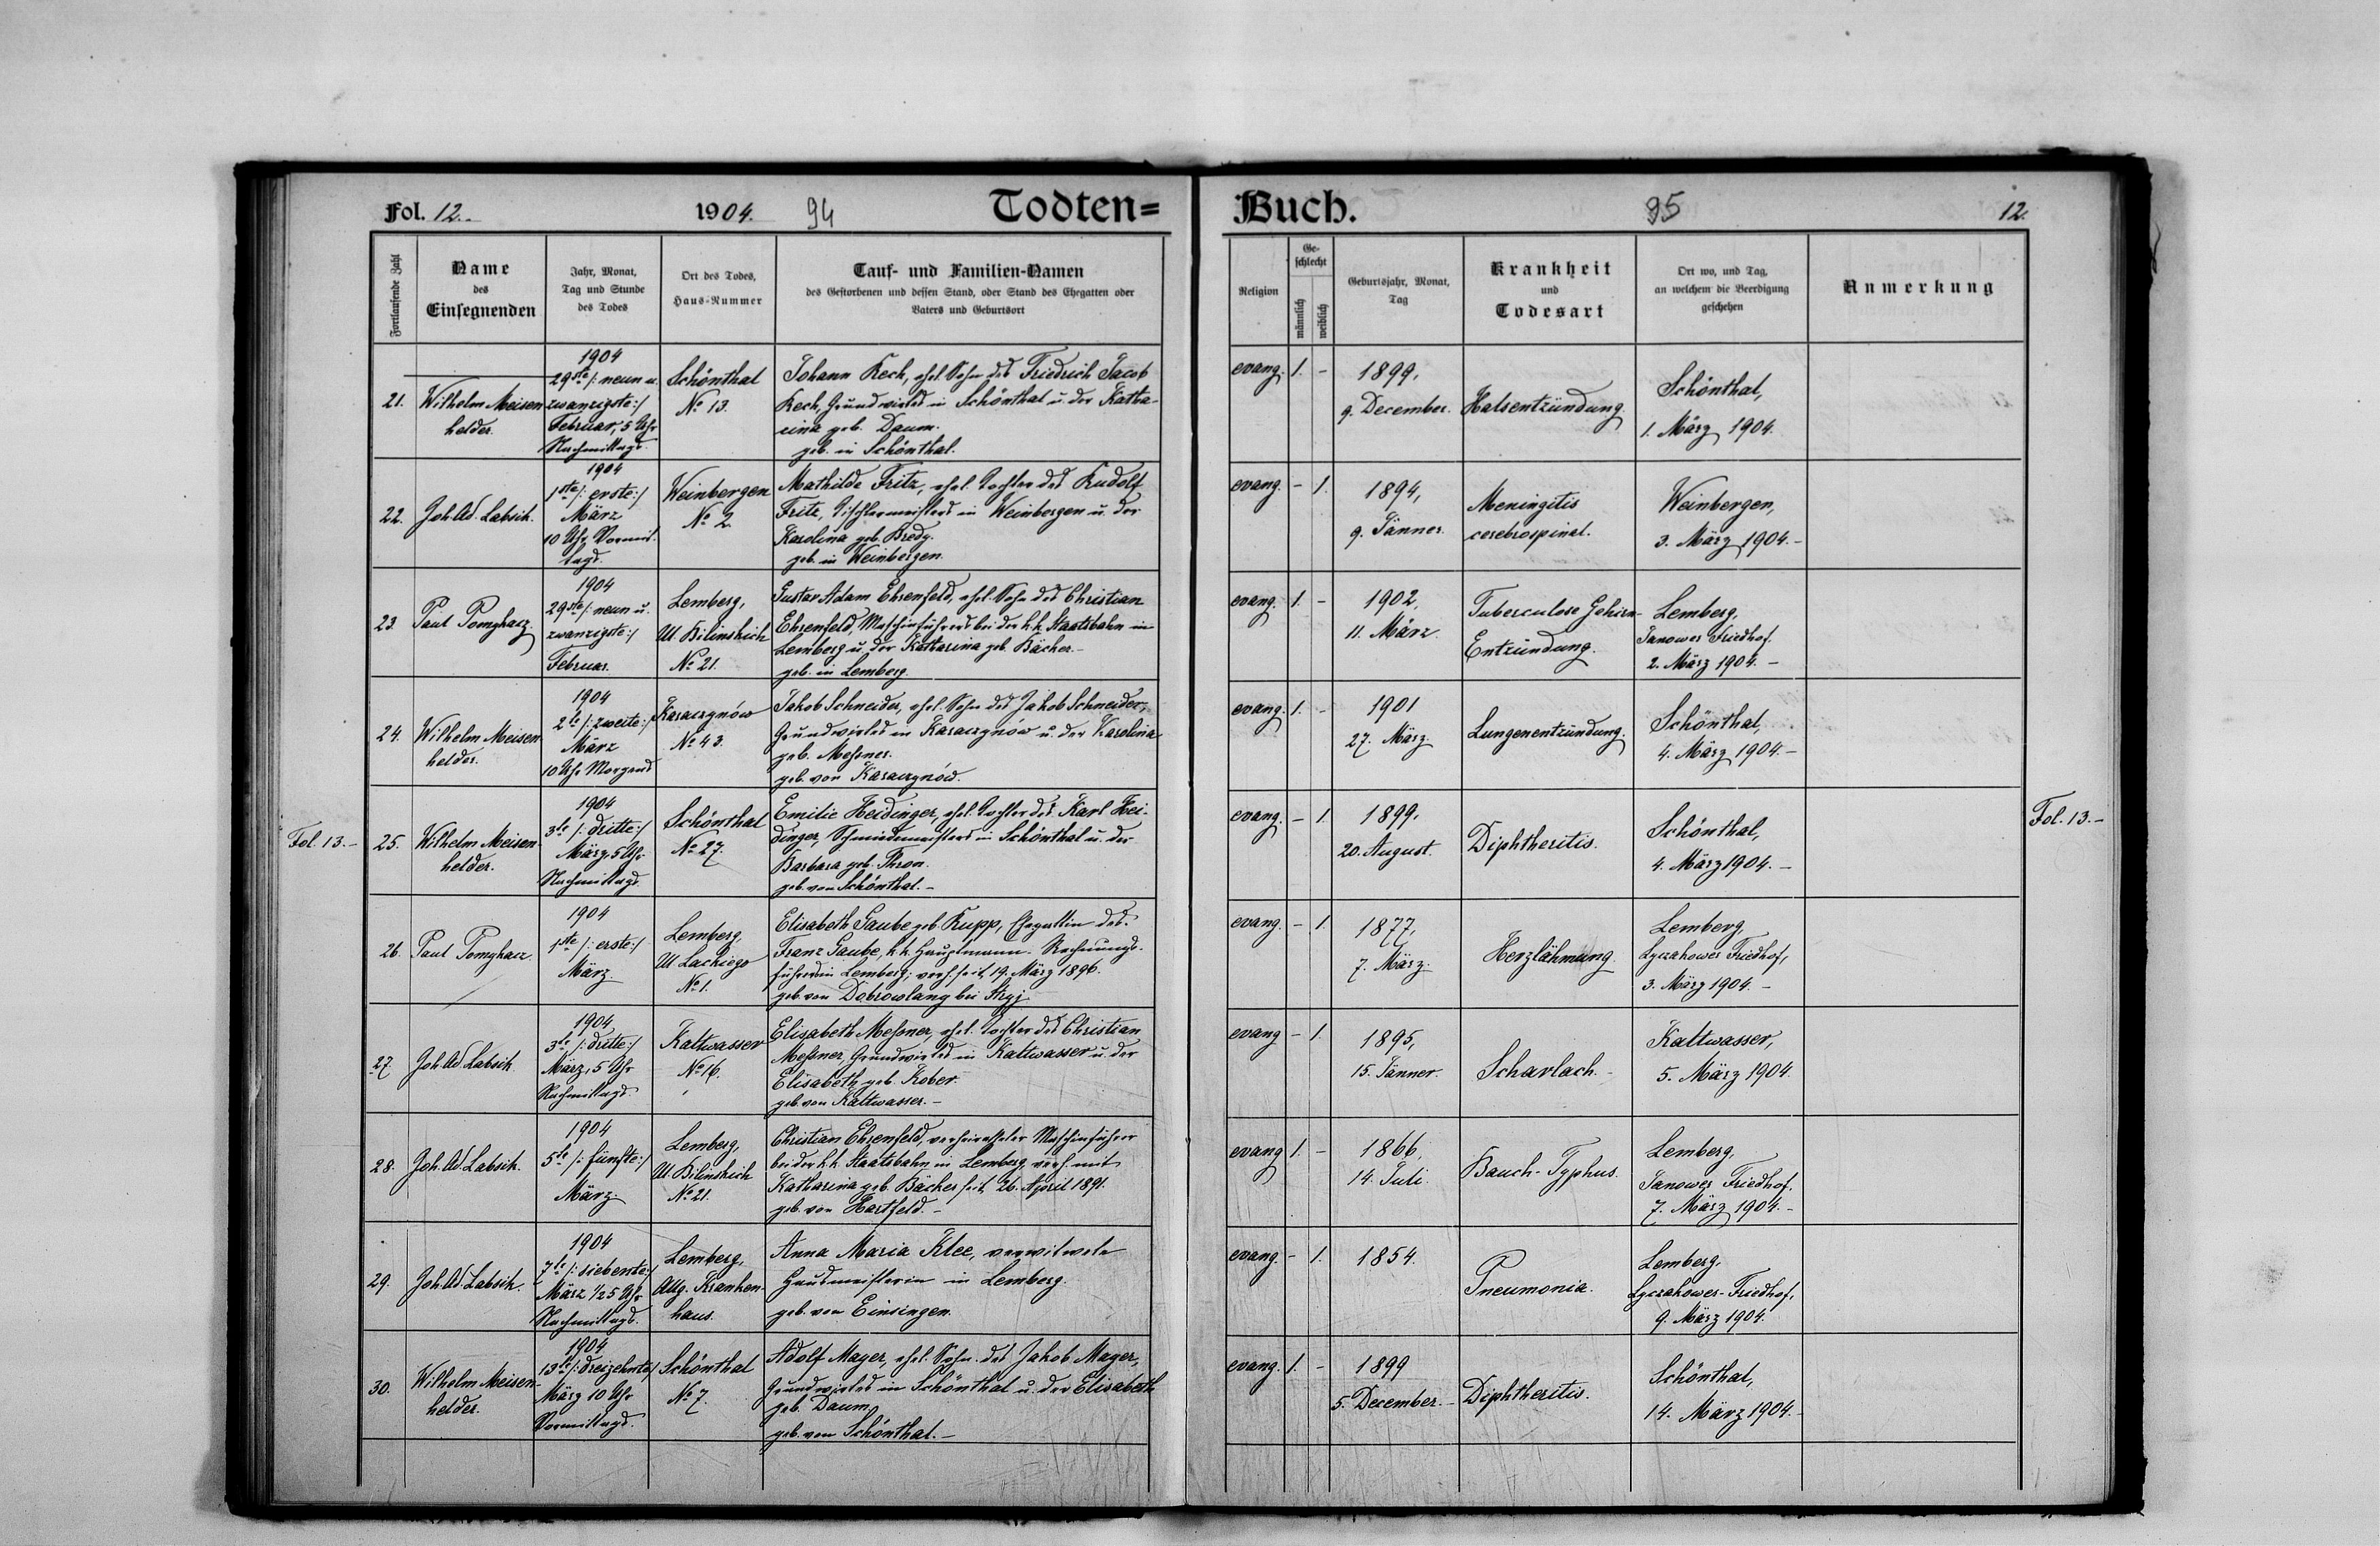 Fol. 12.
1904.
94
Todten=
Fortlaufende Zahl
Name
des
Einsegnenden
Jahr, Monat,
Tag und Stunde
des Todes
Ort des Todes,
Haus-Nummer
Tauf- und Familien-Namen
des Gestorbenen und dessen Stand, oder Stand des Ehegatten oder
Vaters und Geburtsort
21.
Wilhelm Meisen-
helder.
1904
29ste /: neun u.
zwanzigste:/
Februar, 5 Uhr
Nachmittags.
Schönthal
No 13.
Johann Kech, ehel. Sohn des Friedrich Jacob
Kech, Grundwirtes in Schönthal u. der Katha-
rina geb. Daum.
geb. in Schönthal.
22.
Joh. Ad. Labsik.
1904
1ste /: erste:/
März
10 Uhr Vormit-
tags.
Weinbergen
No 2.
Mathilde Fritz, ehel. Tochter des Rudolf
Fritz, Tischlermeisters in Weinbergen u. der
Karolina geb. Bredy.
geb. in Weinbergen.
23.
Paul Pomykacz.
1904
29ste /: neun u.
zwanzigste:/
Februar.
Lemberg,
Ul. Bilinskich
No 21.
Gustav Adam Ehrenfeld, ehel. Sohn des Christian
Ehrenfeld, Maschinführers bei der k.k. Staatsbahn in
Lemberg u. der Katharina geb. Bächer.-
geb. in Lemberg.
24.
Wilhelm Meisen-
helder.
1904
2te /: zweite:/
März
10 Uhr Morgens
Karaczynów
No 43.
Jakob Schneider, ehel. Sohn des Jakob Schneider,
Grundwirtes in Karaczynów u. der Karolina
geb. Meßner.
geb. von Karaczynów.
Fol. 13.-
25.
Wilhelm Meisen-
helder.
1904
3te /: dritte:/
März, 5 Uhr
Nachmittags.
Schönthal
No 27.
Emilie Heidinger, ehel. Tochter des Karl Hei-
dinger, Schmiedemeisters in Schönthal u. der
Barbara geb. Thron.
geb. von Schönthal.-
26.
Paul Pomykacz.
1904
1ste /: erste:/
März.
Lemberg,
Ul Lackiego
No 1.
Elisabeth Gaube geb. Kupp, Ehegattin des
Franz Gaube, k.k. Hauptmann-Rechnungs-
führers in Lemberg; verh. seit 19. März 1896.
geb. von Dobrowlany bei Stryj.
27.
Joh. Ad. Labsik.
1904
3te /: dritte:/
März, 5 Uhr
Nachmittags.
Kaltwasser
No 16.
Elisabeth Meßner, ehel. Tochter des Christian
Meßner, Grundwirtes in Kaltwasser u. der
Elisabeth geb. Kober.
geb. von Kaltwasser.-
28.
Joh. Ad. Labsik.
1904
5te /: fünfte:/
März.
Lemberg,
Ul. Bilinskich
No 21.
Christian Ehrenfeld, verheirateter Maschinführer
bei der k.k. Staatsbahn in Lemberg, verh. mit
Katharina geb. Bächer seit 26. April 1891.
geb. von Hartfeld.-
29.
Joh. Ad Labsik.
1904
7te /: siebente:/
März 1/2 5 Uhr
Nachmittags.
Lemberg,
Allg. Kranken-
haus.
Anna Maria Klee, verwitwete
Hausmeisterin in Lemberg.
geb. von Einsingen.
30.
Wilhelm Meisen-
helder.
1904
13te /: dreizehnte:/
März 10 Uhr
Vormittags.
Schönthal
No 7.
Adolf Mayer, ehel. Sohn des Jakob Mayer,
Grundwirtes in Schönthal u. der Elisabeth
geb. Daum.
geb. von Schönthal.-
Buch.
95
12.
Religion
Ge-
schlecht
männlich
weiblich
Geburtsjahr, Monat,
Tag
Krankheit
und
Todesart
Ort wo, und Tag,
an welchem die Beerdigung
geschehen
Anmerkung
evang. 1. -
1899,
9. December.
Halsentzündung.
Schönthal,
1. März 1904.
evang. - 1.
1894,
9. Jänner.
Meningitis
cerebrospinal.
Weinbergen,
3. März 1904.-
evang. 1. -
1902,
11. März.
Tuberculose Gehirn-
Entzündung.
Lemberg,
Janower Friedhof.
2. März 1904.-
evang. 1. -
1901
27. März.
Lungenentzündung.
Schönthal,
4. März 1904.-
evang. - 1.
1899,
20. August.
Diphtheritis.
Schönthal,
4. März 1904.-
Fol. 13.-
evang. - 1.
1877,
7. März.
Herzlähmung.
Lemberg,
Lyczakower Friedhof,
3. März 1904.-
evang - 1.
1895,
15. Jänner.
Scharlach.-
Kaltwasser,
5. März 1904.
evang 1. -
1866,
14. Juli.
Bauch-Typhus.
Lemberg,
Janower Friedhof.
7. März 1904.-
evang. - 1.
1854.
Pneumonia.
Lemberg,
Lyczakower-Friedhof,
9. März 1904.
evang. 1. -
1899
5. December.-
Diphtheritis.
Schönthal,
14. März 1904.-